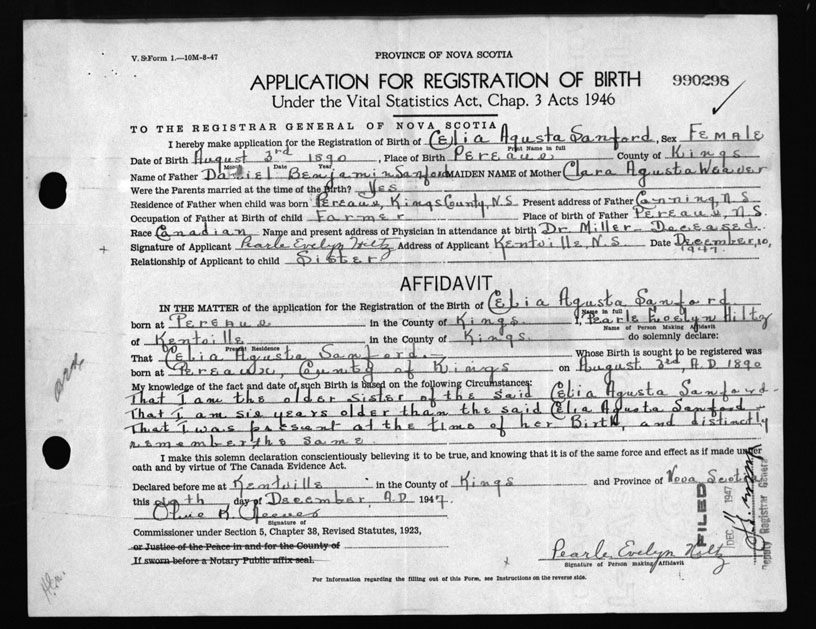 V. S. Form 1.—10M-8-47
PROVINCE OF NOVA SCOTIA
APPLICATION FOR REGISTRATION OF BIRTH
990298
Under the Vital Statistics Act, Chap. 3 Acts 1946
TO THE REGISTRAR GENERAL OF NOVA SCOTIA
I hereby make application for the Registration of Birth of Celia Agusta Sanford, Sex FEMALE
Print Name in full
Date of Birth August 3rd 1890, Place of Birth Pereaue County of Kings
Month Date Year
Name of Father Daniel Benjamin Sanford MAIDEN NAME of Mother Clara Agusta Weaver
Were the Parents married at the time of the Birth? Yes
Residence of Father when child was born Pereaue, Kings County, N.S. Present address of Father Canning, N.S.
Occupation of Father at Birth of child Farmer Place of birth of Father Pereaue, N.S.
Race Canadian Name and present address of Physician in attendance at birth Dr. Miller - Deceased.
Signature of Applicant Pearle Evelyn Hiltz Address of Applicant Kentville, N.S. Date December, 10, 1947.
Relationship of Applicant to child Sister
AFFIDAVIT
IN THE MATTER of the application for the Registration of the Birth of Celia Agusta Sanford
Name in full
born at Pereaue in the County of Kings I, Pearle Evelyn Hiltz
Name of Person Making Affidavit
of Kentville in the County of Kings do solemnly declare:
Present Residence
That Celia Agusta Sanford. Whose Birth is sought to be registered was
born at Pereaux, County of Kings on August 3rd, A.D. 1890
My knowledge of the fact and date of such Birth is based on the following Circumstances:
That I am the older Sister of the said Celia Agusta Sanford
That I am six years older than the said Celia Agusta Sanford
That I was present at the time of her Birth, and distinctly
remember the same.
I make this solemn declaration conscientiously believing it to be true, and knowing that it is of the same force and effect as if made under
oath and by virtue of The Canada Evidence Act.
Declared before me at Kentville in the County of Kings and Province of Nova Scotia
this day of December, A.D. 1947.
Olive K.
Signature of
Commissioner under Section 5, Chapter 38, Revised Statutes, 1923,
or Justice of the Peace in and for the County of
If sworn before a Notary Public affix seal.
Pearle Evelyn Hiltz
Signature of Person making Affidavit
For Information regarding the filling out of this Form, see Instructions on the reverse side.
FILED
DEC 11 1947
Deputy Registrar General